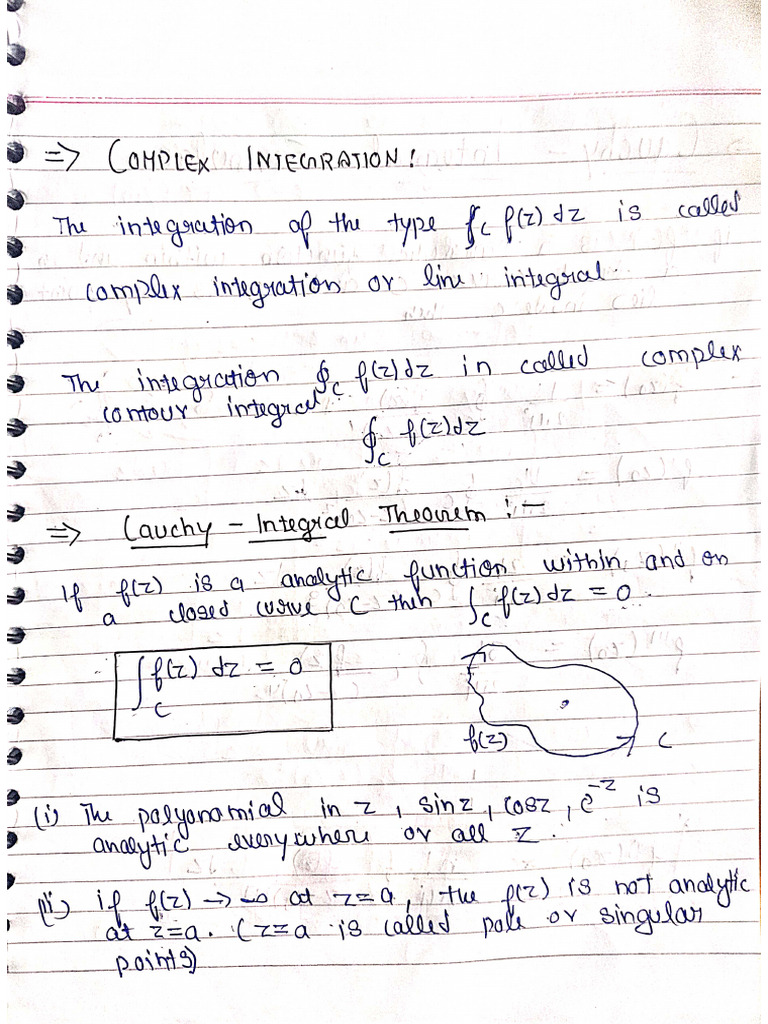 ⇒ COMPLEX INTEGRATION:
The integration of the type ∫c f(z) dz is called
complex integration or line integral.
The integration ∮c f(z)dz in called complex
contour integral.
∮c f(z)dz
⇒ Cauchy - Integral Theorem :-
If f(z) is a analytic function within and on
a closed curve C then ∫c f(z)dz = 0.
∫c f(z) dz = 0
f(z) C
(i) The polyonomial in z, sinz, cosz, e^-z is
analytic everywhere or all z.
(ii) if f(z) → ∞ at z=a, the f(z) is not analytic
at z=a. (z=a is called pole or singular
points)